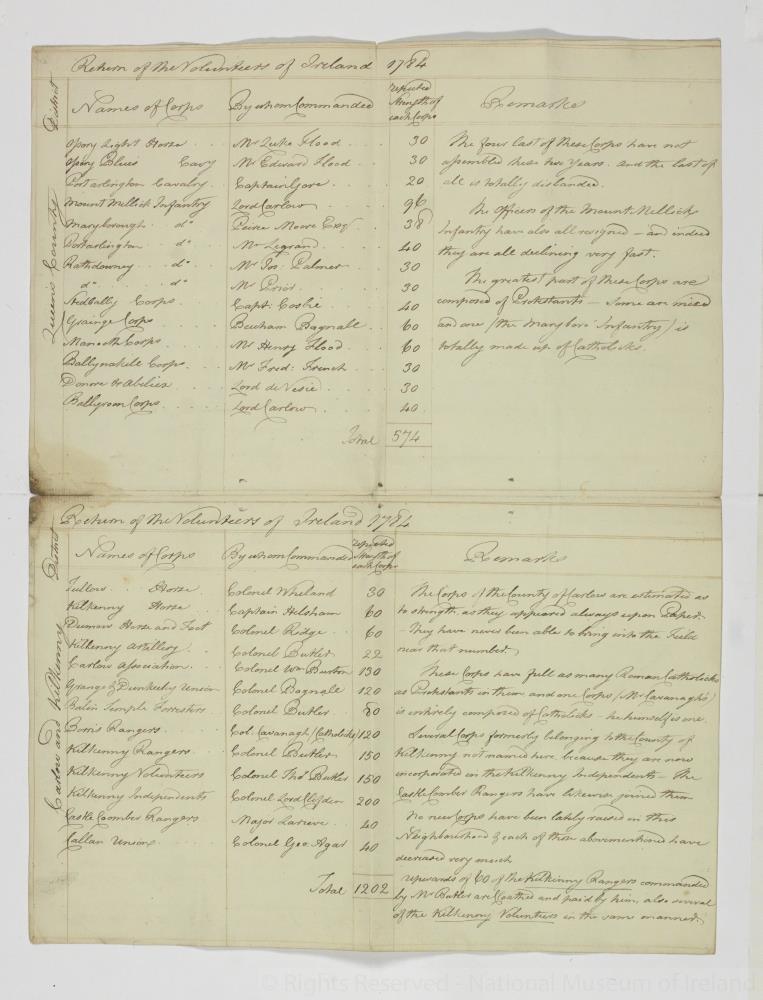 Return of the Volunteers of Ireland 1784
Queens County District
Names of Corps By whom Commanded reputed Strength of each Corps Remarks
Ossory Light Horse Mr Luke Flood 30
Ossory Blues Cavy Mr Edward Flood 30
Portarlington Cavalry Captain Gore 20
Mount Mellick Infantry Lord Carlow 96
Maryborough do Peirce Moore Esqr 38
Portarlington do Mr Legrand 40
Rathdowney do Mr Jos: Palmer 30
do do Mr Prior 30
Stradbally Corps Capt: Cosbie 40
Grainge Corps Beecham Bagnall 60
Corps Mr Henry Flood 60
Ballynakill Corps Mr Fred: French 30
Donore Lord de Vesie 30
Ballyroan Corps Lord Carlow 40
Total 574
The four last of these Corps have not
assembled these two Years. and the last of
all is totally disbanded.
The Officers of the Mount Mellick
Infantry have also all resigned — and indeed
they are all declining very fast.
The greatest part of these Corps are
composed of Protestants — Some are mixed
and one (the Maryboro' Infantry) is
totally made up of Catholicks.
Return of the Volunteers of Ireland 1784
Carlow and Kilkenny District
Names of Corps By whom Commanded reputed Strength of each Corps Remarks
Tullow Horse Colonel Wheland 30
Kilkenny Horse Captain Helsham 60
Dunmore Horse and Foot Colonel Ridge 60
Kilkenny Artillery Colonel Butler 22
Carlow Association Colonel Wm Burton 130
Grange & Dunleckny Union Colonel Bagnall 120
Temple Forresters Colonel Butler 80
Borris Rangers Col. Cavanagh (Catholicks) 120
Kilkenny Rangers Colonel Butler 150
Kilkenny Volunteers Colonel Thos Butler 150
Kilkenny Independents Colonel Lord Clifden 200
Castle Comber Rangers Major Larieve 40
Callan Union Colonel Geo: Agar 40
Total 1202
The Corps of the County of Carlow are estimated as
to strength, as they appeared always upon Paper.
— They have never been able to bring into the Field
near that number.
These Corps have full as many Roman Catholicks
as Protestants in them and one Corps (Mr Cavanagh's)
is entirely composed of Catholicks — he himself is one.
Several Corps formerly belonging to the County of
Kilkenny not named here, because they are now
incorporated in the Kilkenny Independents — The
Castle Comber Rangers have likewise joined them
No new Corps have been lately raised in this
Neighbourhood & each of those abovementioned have
decreased very much
Upwards of 60 of the Kilkenny Rangers commanded
by Mr Butler are Cloathed and paid by him, also several
of the Kilkenny Volunteers in the same manner.
© Rights Reserved - National Museum of Ireland